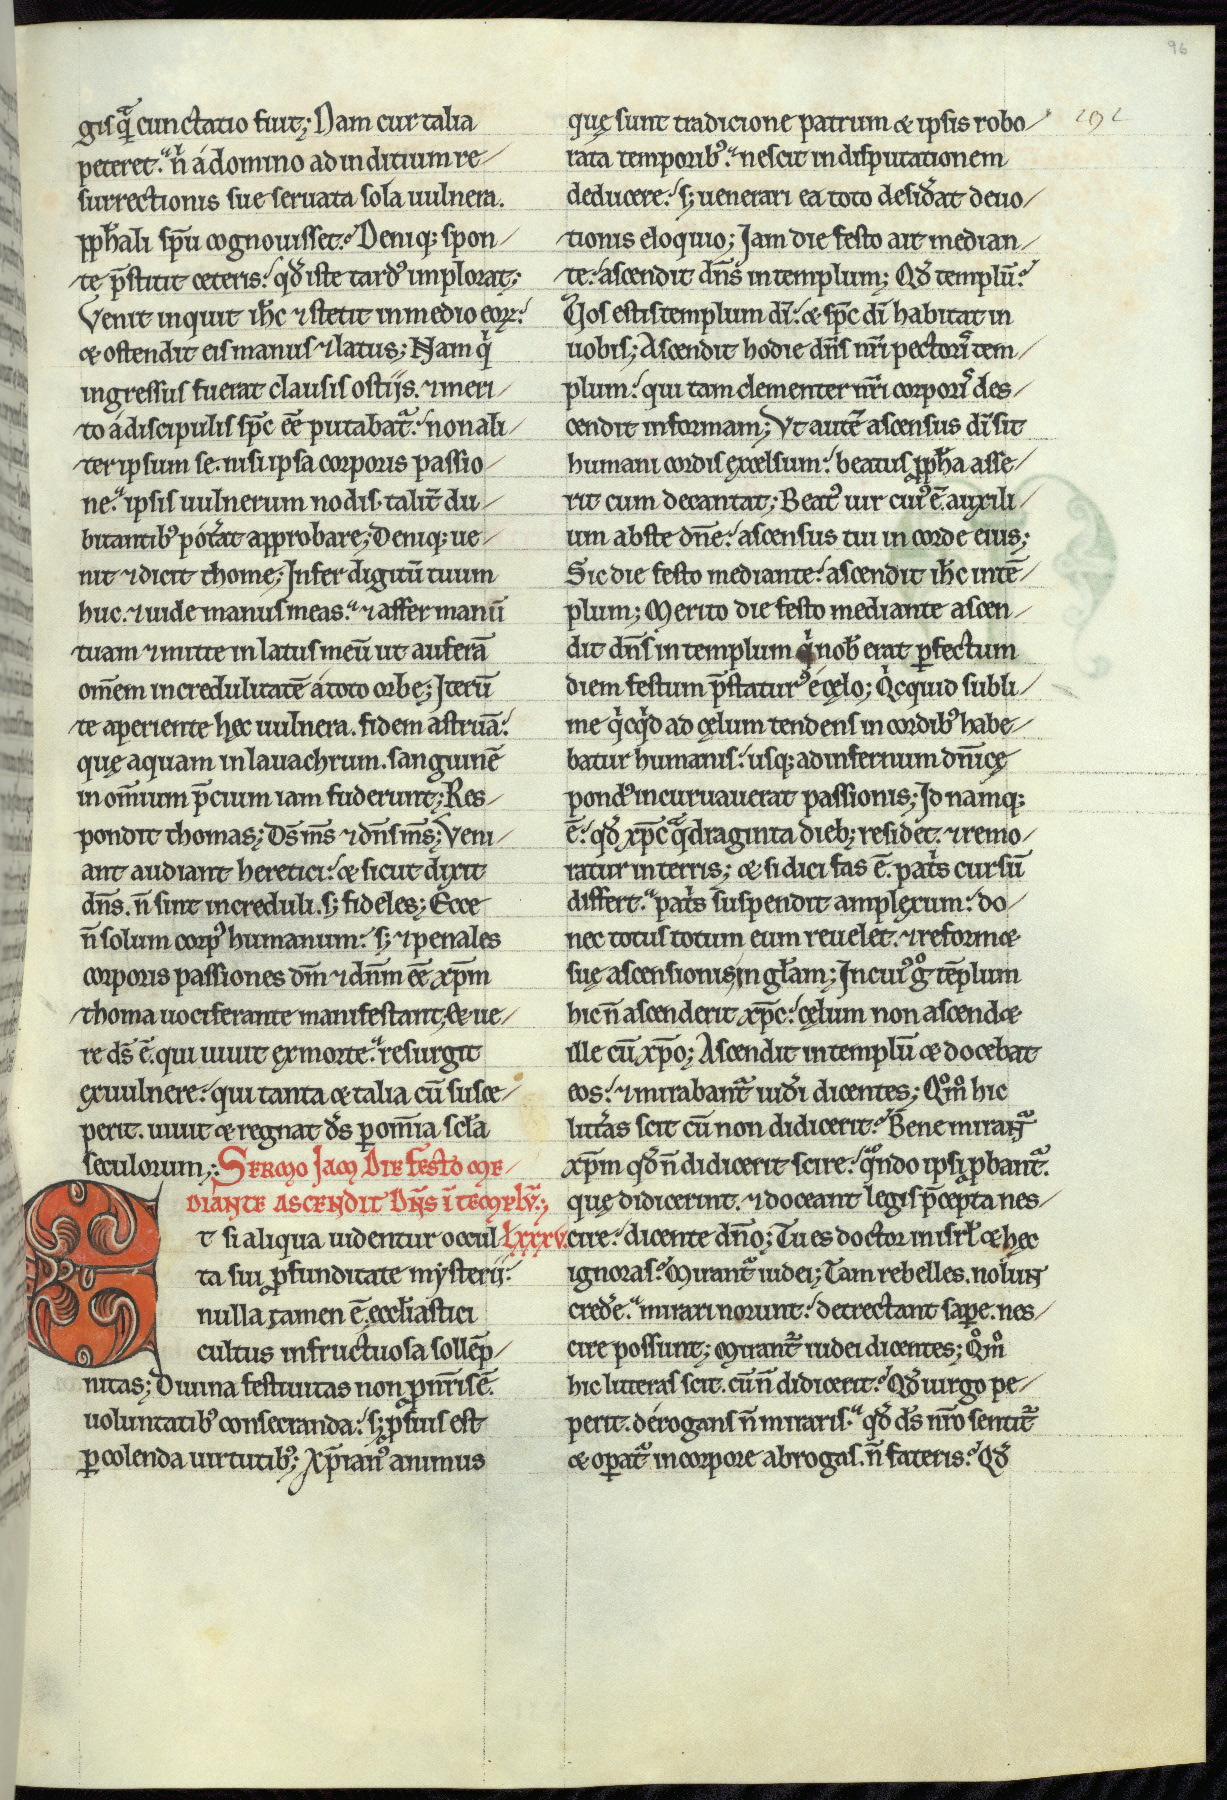 96
191
gisq̄ cunctatio fuit; Nam cur talia
peteret. n̄ a domino ad inditium re-
surrectionis sue seruata sola uulnera.
pph̄ali sp̄u cognouisset. Deniq; spon-
te p̄stitit ceteris. qd̄ iste tard᾽ implorat;
Venit inquit ih̄c ⁊ stetit in medio eoꝝ.
& ostendit eis manus ⁊ latus; Nam q̇
ingressus fuerat clausis ostijs. ⁊ meri-
to a discipulis sp̄c ēē putabat̄. non ali-
ter ipsum se. nisi ipsa corporis passio-
ne. ipsis uulnerum nodis. talit̄ du-
bitantib᾽ pot̄at approbare; Deniq; ue-
nit ⁊ dicit thome; Infer digitū tuum
huc. ⁊ uide manus meas. ⁊ affer manū
tuam ⁊ mitte in latus meū ut auferā
om̄em incredulitatē a toto orbe; Iterū
te aperiente hęc uulnera. fidem astruā.
quę aquam in lauachrum. sanguinē
in om̄ium p̄cium iam fuderunt; Res-
pondit thomas; Ds̄ ms̄ ⁊ dn̄s ms̄; Veni-
ant audiant heretici. & sicut dixit
dn̄s. n̄ sint increduli. s; fideles; Ecce
n̄ solum corp᾽ humanum. s; ⁊ penales
corporis passiones dm̄ ⁊ dn̄m ēē xp̄m
thoma uociferante manifestant; & ue-
re ds̄ ē. qui uiuit ex morte. resurgit
ex uulnere. qui tanta & talia cū susce-
perit. uiuit & regnat ds̄ ꝑ om̄ia scl̄a
seculorum;. Sermo Iam Die festo me-
diante ascendit dn̄s ī templū;
Et si aliqua uidentur occul- Lxxxv.
ta sui ꝓfunditate mysterij.
nulla tamen ē. eccl̄iastici
cultus infructuosa sollēp-
nitas; Diuina festiuitas non ꝓ nr̄is ē.
uoluntatib᾽ consecranda. s; ꝓ suis est
ꝑcolenda uirtutib᾽; Xp̄ian᾽ animus
quę sunt tradicione patrum & ipsis robo-
rata temporib᾽. nescit in disputationem
deducere. s; uenerari ea toto desid̄at deuo-
tionis eloquio; Iam die festo ait median-
te. ascendit dn̄s in templum; Qd̄ templū.
Vos estis templum dī. & sp̄c dī habitat in
uobis; Ascendit hodie dn̄s nr̄i pectoris tem-
plum. qui tam clementer nr̄i corporis des-
cendit in formam; Vt autē ascensus dī sit
humani cordis excelsum. beatus pph̄a asse-
rit cum decantat; Beat᾽ uir cui᾽ ē. auxili-
um abs te dn̄e. ascensus tui in corde eius;
Sic die festo mediante. ascendit ih̄c in tē-
plum; Merito die festo mediante ascen-
dit dn̄s in templum q̇ nob̄ erat ꝑfectum
diem festum p̄statur᾽ e cęlo; Qicquid subli-
me q̇cq̇d ad cęlum tendens in cordib᾽ habe-
batur humanis. usq; ad infernum dn̄icę
pond᾽ incuruauerat passionis; Id namq;
ē. qd̄ xp̄c q̄draginta dieb; residet. ⁊ remo-
ratur in terris; & si dici fas ē. pat̄s cursū
differt. pat̄s suspendit amplexum. do-
nec totus totum eum reuelet. ⁊ reform&
suę ascensionis in gl̄am; In cui᾽ gͦ tēplum
hic n̄ ascenderit xp̄c. cęlum non ascend&
ille cū xp̄o; Ascendit in templū & docebat
eos. ⁊ mirabant̄ iud̄i dicentes; Qͦmͦ hic
litt̄as scit cū non didicerit. Bene mirant̄
xp̄m qd̄ n̄ didicerit scire. qͣndo ipsi ꝓbant̄.
quę didicerint. ⁊ doceant legis p̄cepta nes-
cire. dicente dn̄o; Tu es doctor in isrl̄ & hęc
ignoras. Mirant̄ iudei; Tam rebelles. nolunt
cred̄e. mirari norunt. detrectant sapere. nes-
cire possunt; Mirant̄ iudei dicentes; Qͦmͦ
hic litteras scit. cū n̄ didicerit. Qd̄ uirgo pe-
perit. derogans n̄ miraris. qd̄ ds̄ nr̄o sentit̄
& oꝑat̄ in corpore abrogas. n̄ fateris. Qd̄